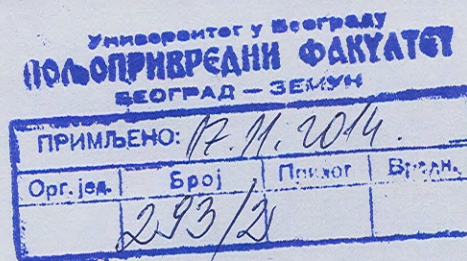 Универзитет у Београду
ПОЉОПРИВРЕДНИ ФАКУЛТЕТ
БЕОГРАД — ЗЕМУН
ПРИМЉЕНО: 17. 11. 2014.
Орг. јед. Број Прилог Вредн.
293/2